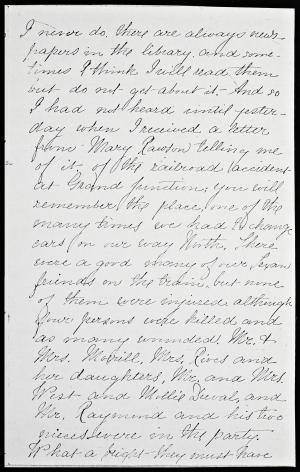 I never do, there are always news-
papers in the library, and some-
times I think I will read them
but do not get about it. And so
I had not heard until yester-
day when I received a letter
from Mary Rawson telling me
of it, of the railroad accident
at Grand Junction; you will
remember the place, one of the
many times we had to change
cars on our way North. There
were a good many of our
friends on the train, but none
of them were injured although
four persons were killed and
as many wounded. Mr. &
Mrs. Morrill, Mrs. Rives and
her daughters, Mr. and Mrs.
West and Mollie and
Mr. Raymond and his two
nieces, were in the party.
What a fright they must have